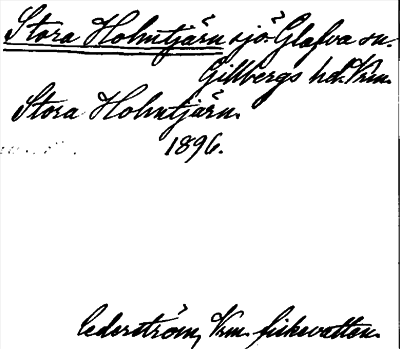 Stora Holmtjärn sjö Glafva sn.
Gillbergs hd. Vrm.
Stora Holmtjärn.
1896.
Cederström, Vrm. fiskevatten.